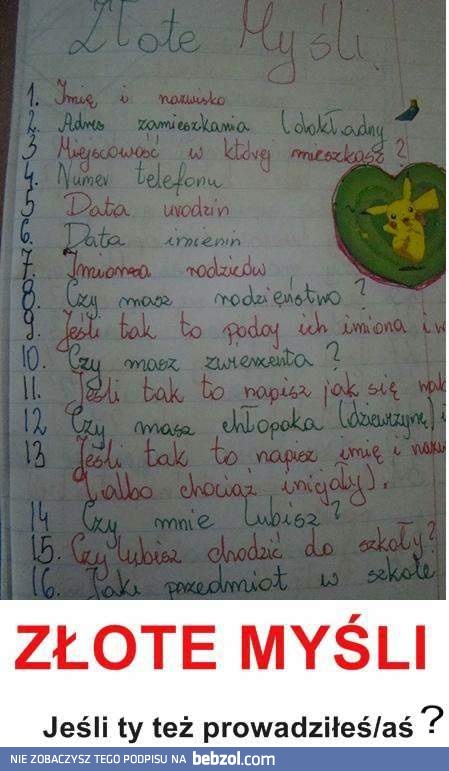 Złote Myśli
1. Imię i nazwisko
2. Adres zamieszkania (dokładny
3 Miejscowość w której mieszkasz?
4. Numer telefonu
5 Data urodzin
6. Data imienin
7. Imiona rodziców
8. Czy masz rodzięństwo?
9. Jeśli tak to podaj ich imiona i w
10. Czy masz zwierzenta?
11. Jeśli tak to napisz jak się
12 Czy masz chłopaka (dziewczynę) i
13 Jeśli tak to napisz imię i nazw
(albo chociaż inicjały).
14 Czy mnie lubisz?
15. Czy lubisz chodzić do szkoły?
16. Jaki przedmiot w szkole
ZŁOTE MYŚLI
Jeśli ty też prowadziłeś/aś ?
NIE ZOBACZYSZ TEGO PODPISU NA bebzol.com